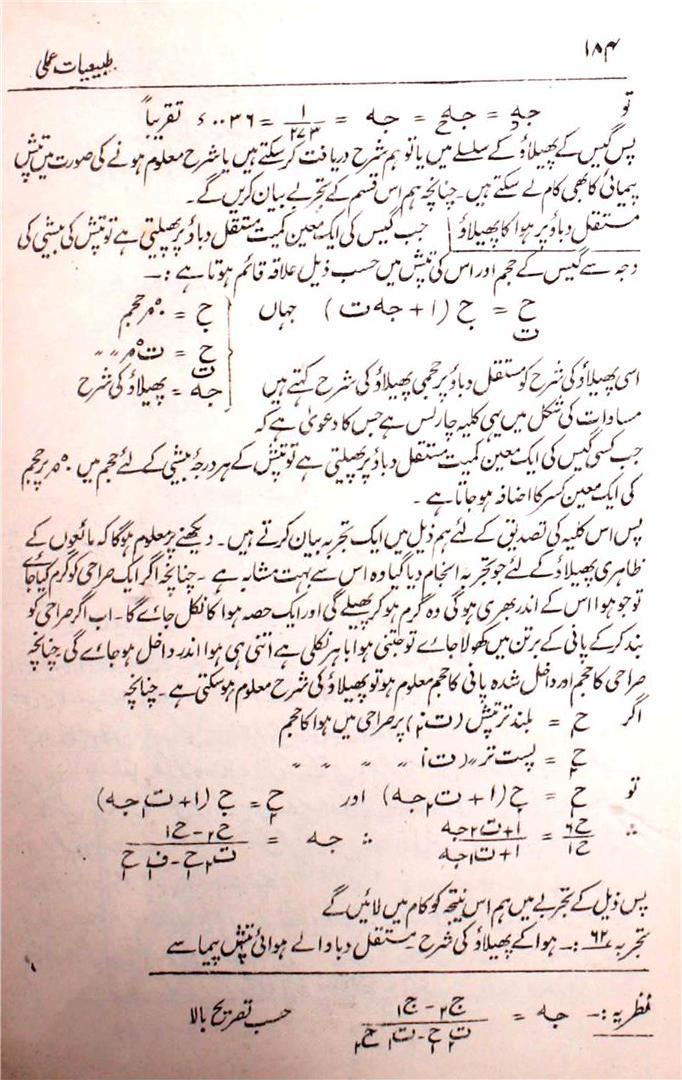 ۱۸۴
طبیعیات عملی
تو جہ = جہ = جہ = ۱/۲۷۳ = ۰۰۳۶ء تقریباً
پس گیس کے پھیلاؤ کے سلسلے میں یا تو ہم شرح دریافت کرسکتے ہیں یا شرح معلوم ہونے کی صورت میں تپش
پیمائی کا بھی کام لے سکتے ہیں۔ چنانچہ ہم اس قسم کے تجربے بیان کریں گے۔
مستقل دباؤ پر ہوا کا پھیلاؤ جب گیس کی ایک معین کمیت مستقل دباؤ پر پھیلتی ہے تو تپش کی بیشی کی
وجہ سے گیس کے حجم اور اس کی تپش میں حسب ذیل علاقہ قائم ہوتا ہے :۔
ح ت = ح. (۱ + جہ ت) جہاں ح. = ۰°مر حجم
ح ت = ت°مر 〃 〃
اسی پھیلاؤ کی شرح کو مستقل دباؤ پر حجمی پھیلاؤ کی شرح کہتے ہیں جہ = پھیلاؤ کی شرح
مساوات کی شکل میں یہی کلیہ چارلس ہے جس کا دعویٰ ہے کہ
جب کسی گیس کی ایک معین کمیت مستقل دباؤ پر پھیلتی ہے تو تپش کے ہر درجۂ بیشی کے لئے حجم میں ۰°مر پر حجم
کی ایک معین کسر کا اضافہ ہو جاتا ہے۔
پس اس کلیہ کی تصدیق کے لئے ہم ذیل میں ایک تجربہ بیان کرتے ہیں۔ دیکھنے پر معلوم ہوگا کہ مائعوں کے
ظاہری پھیلاؤ کے لئے جو تجربہ انجام دیا گیا وہ اس سے بہت مشابہ ہے۔ چنانچہ اگر ایک صراحی کو گرم کیا جائے
تو جو ہوا اس کے اندر بھری ہوگی وہ گرم ہوکر پھیلے گی اور ایک حصہ ہوا کا نکل جائے گا۔ اب اگر صراحی کو
بند کرکے پانی کے برتن میں کھولا جائے تو جتنی ہوا باہر نکلی ہے اتنی ہی ہوا اندر داخل ہوجائے گی چنانچہ
صراحی کا حجم اور داخل شدہ پانی کا حجم معلوم ہو تو پھیلاؤ کی شرح معلوم ہوسکتی ہے۔ چنانچہ
اگر ح۲ = بلند تر تپش (ت۲) پر صراحی میں ہوا کا حجم
ح۱ = پست تر 〃 (ت۱ 〃 〃 〃 〃 〃
تو ح۱ = ح. (۱ + ت۱ جہ) اور ح۲ = ح. (۱ + ت۲ جہ)
∴ ح۲/ح۱ = ۱+ت۲جہ/۱+ت۱جہ ∴ جہ = ح۲-ح۱/ت۲ح۱-ت۱ح۲
پس ذیل کے تجربے میں ہم اس نتیجہ کو کام میں لائیں گے
تجربہ ۶۲ :۔ ہوا کے پھیلاؤ کی شرح مستقل دباو والے ہوائی تپش پیما سے
نظریہ :۔ جہ = ح۲ - ح۱/ت۲ح۱ - ت۱ح۲ حسب تصریح بالا